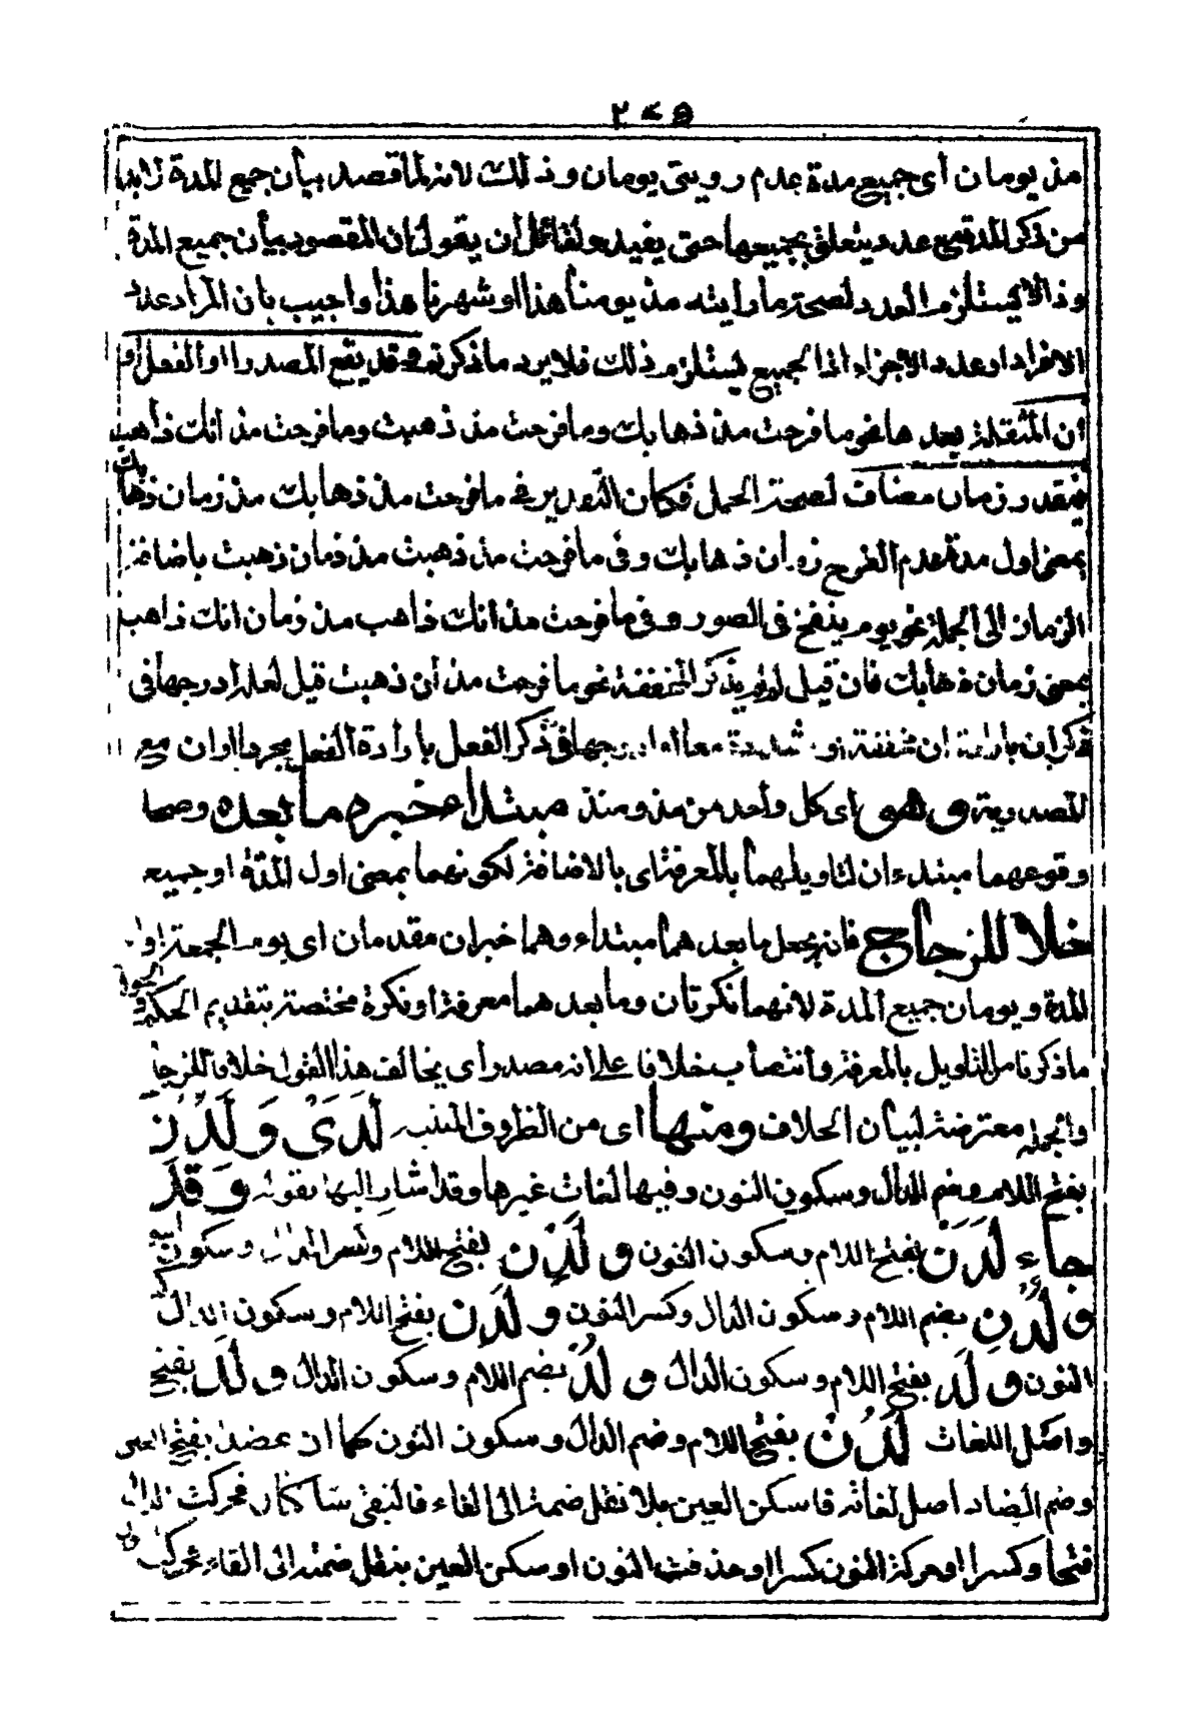 ٢٧٥
مذ يومان أى جميع مدة عدم رويتى يومان وذلك لانه لما قصد بيان جميع المدة لابد
من ذكر المدة مع عدد يتعلق بجميعها حتى يفيد ولقائل ان يقول ان المقصود بيان جميع المدة
وذا لا يستلزم العدد لصحة ما رأيته مذ يومنا هذا او شهرنا هذا واجيب بان المراد عدد
الافراد او عدد الاجزاء اذ الجميع يستلزم ذلك فلا يرد ما ذكرتم وقد يقع المصدر او الفعل او
أن المثقلة بعدها نحو ما فرحت مذ ذهابك وما فرحت مذ ذهبت وما فرحت مذ انك ذاهب
فيقدر زمان مضاف لصحة الحمل فكان التقدير فى ما فرحت مذ ذهابك مذ زمان ذهابك
بمعنى اول مدة عدم الفرح زمان ذهابك وفى ما فرحت مذ ذهبت مذ زمان ذهبت باضافة
الزمان الى الجملة نحو يوم ينفخ فى الصور وفى ما فرحت مذ أنك ذاهب مذ زمان انك ذاهب
بمعنى زمان ذهابك فان قيل لم لم يذكر المخففة نحو ما فرحت مذ أن ذهبت قيل لعله ادرجها فى
ذكر ان بارادة ان مخففة او مشددة معا او ادرجها فى ذكر الفعل بارادة الفعل مجردا او ان مع
المصدرية وهى اى كل واحد من مذ ومنذ مبتدا خبره ما بعده وصحا
وقوعهما مبتدءان لتاويلهما بالمعرفة اى بالاضافة لكونهما بمعنى اول المدة او جميعه
خلافا للزجاج فانه يجعل ما بعدهما مبتداء وهما خبران مقدمان اى يوم الجمعة اول
المدة ويومان جميع المدة لانهما نكرتان وما بعدهما معرفة او نكرة مختصة بتقديم الحكم والجواب
ما ذكرنا من التاويل بالمعرفة وانتصاب خلافا على انه مصدر أى يخالف هذا القول خلافا للزجاج
والجملة معترضة لبيان الخلاف ومنها اى من الظروف المبنية لَدَىْ وَلَدُنْ
بفتح اللام وضم الدال وسكون النون وفيها لغات غيرها وقد اشار اليها بقوله وَقَدْ
جاء لَدَنْ بفتح اللام وسكون النون و لَدِنْ بفتح اللام وكسر الدال وسكون النون
و لُدْنِ بضم اللام وسكون الدال وكسر النون و لَدْنِ بفتح اللام وسكون الدال وكسر
النون و لَدْ بفتح اللام وسكون الدال و لُدْ بضم اللام وسكون الدال و لَدُ بفتح
واصل اللغات لَدُنْ بفتح اللام وضم الدال وسكون النون كما ان عضد بفتح العين
وضم الضاد اصل لغاته فاسكن العين بلا نقل ضمة الى الفاء فالتقى ساكنان فحركت الدال
فتحا وكسرا او حركة النون كسرا او حذفت النون او سكن العين بنقل ضمته الى الفاء فحركت